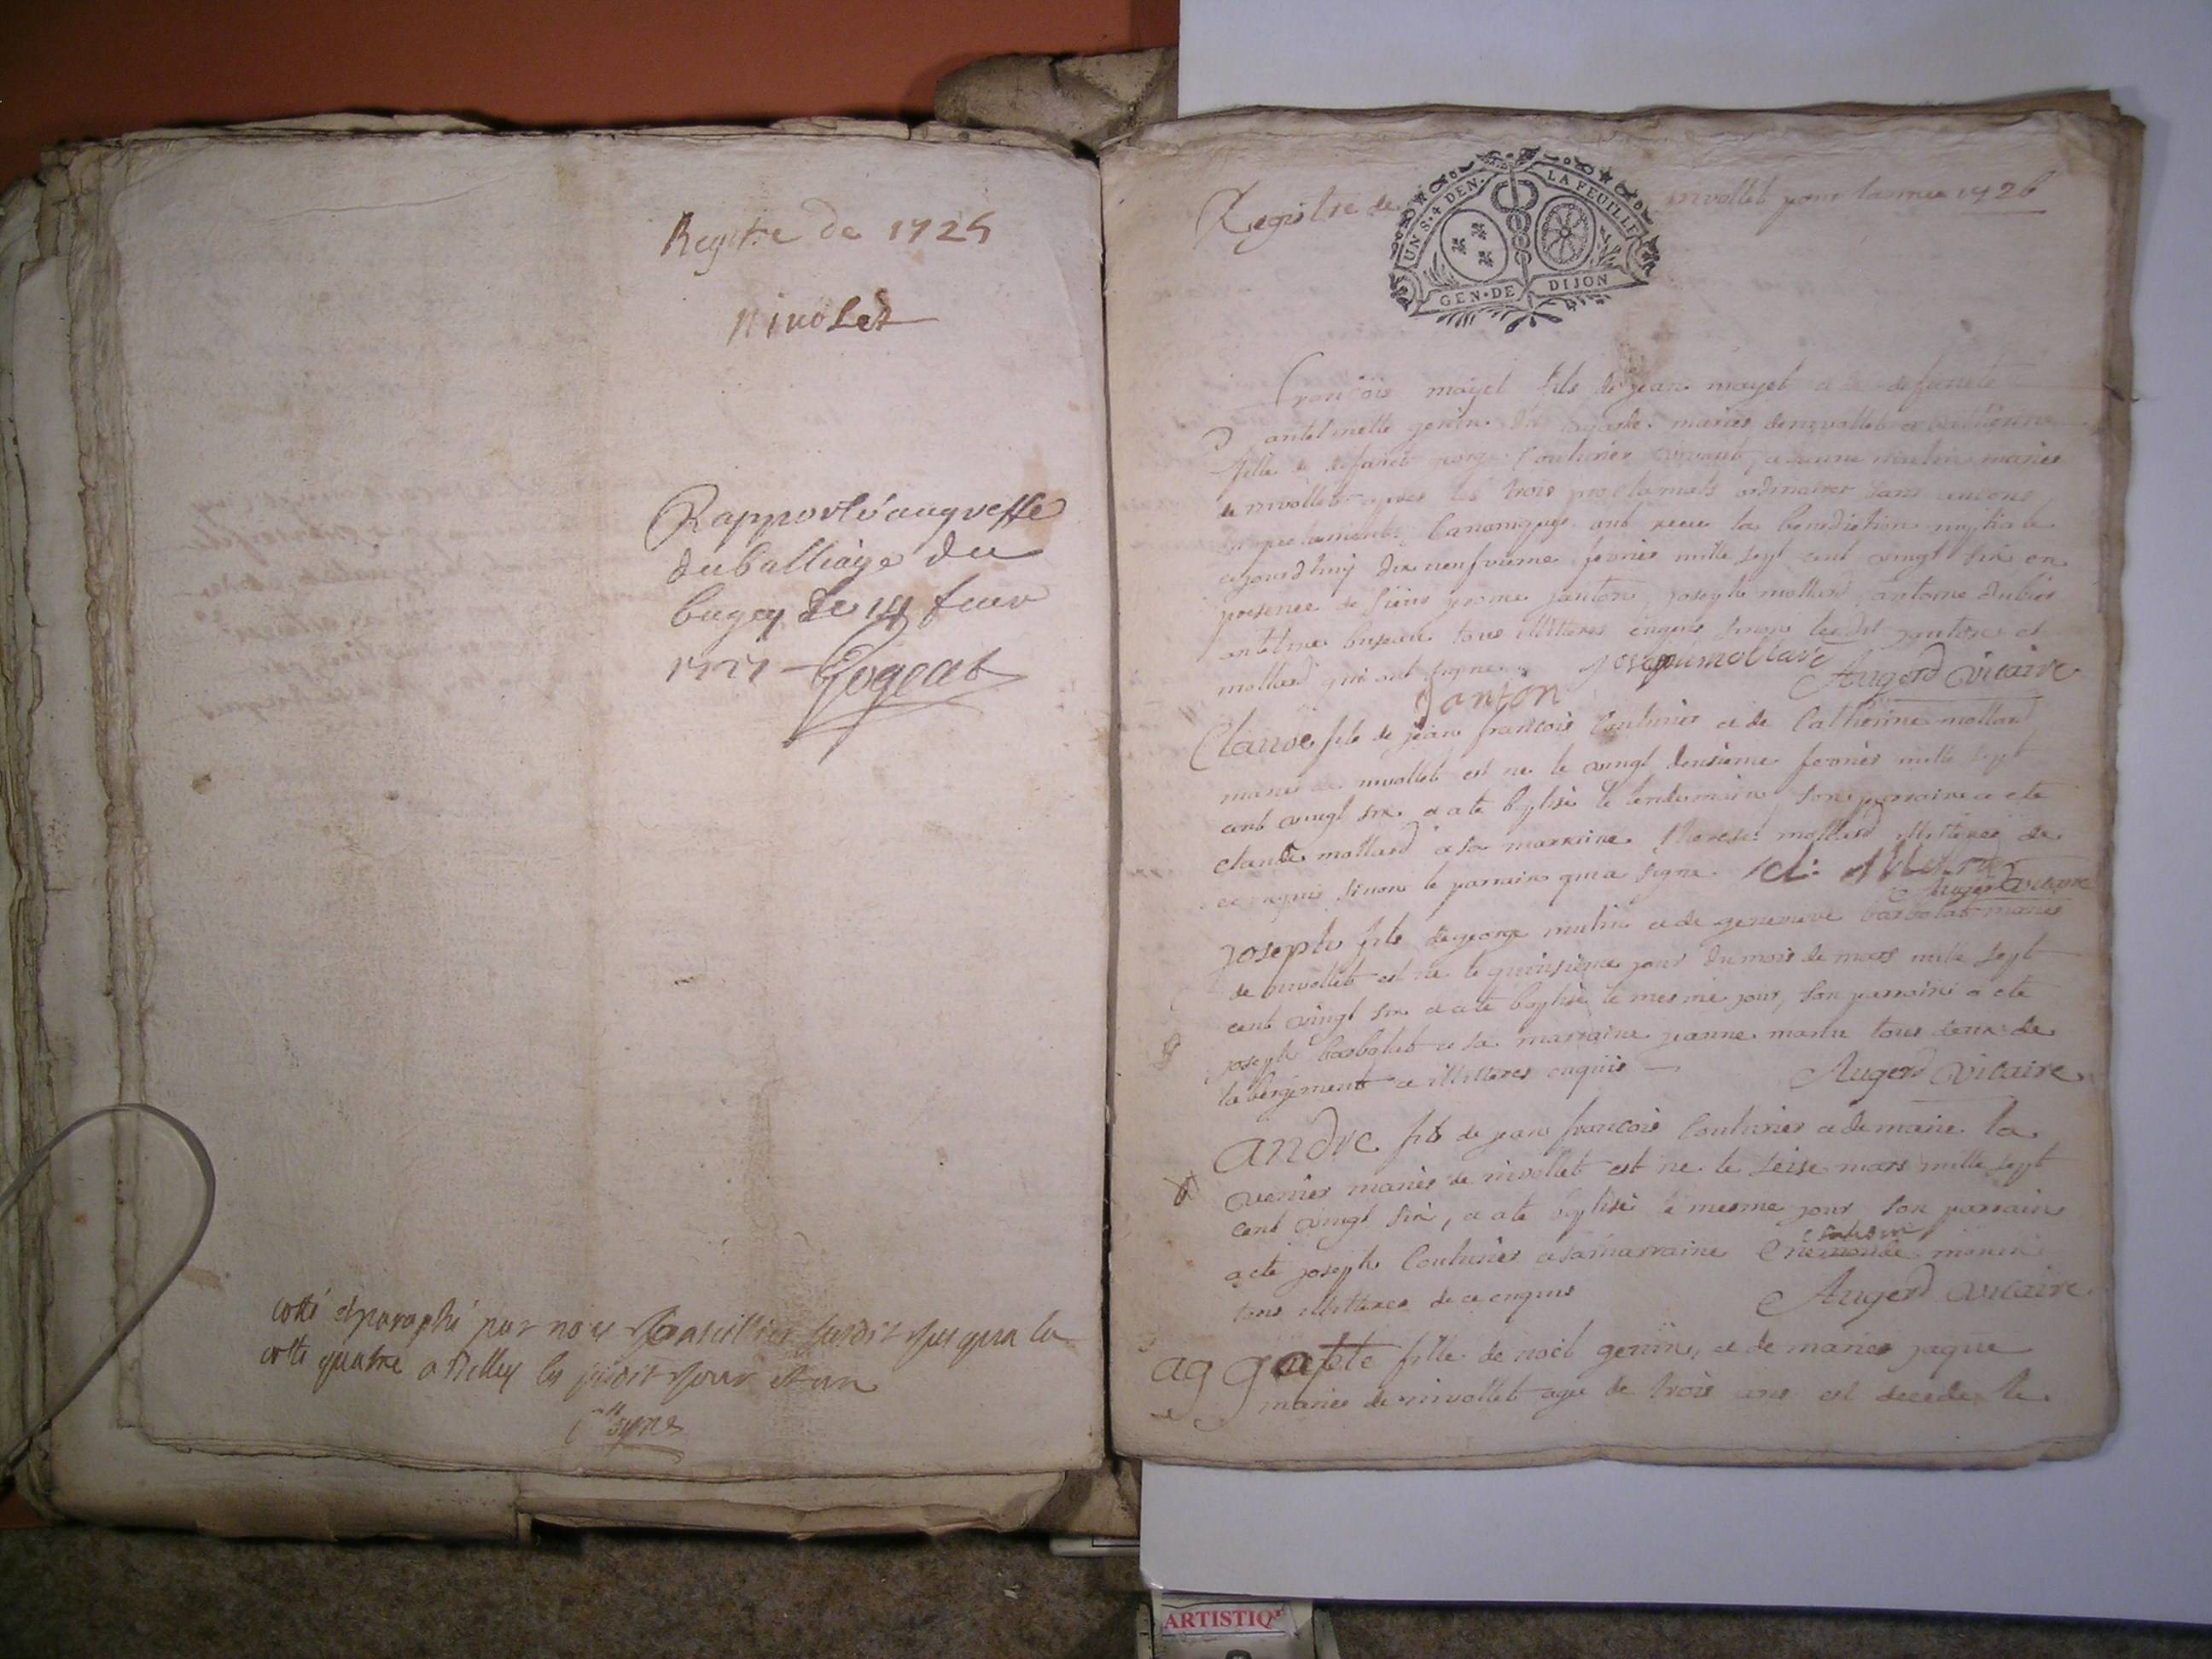 Regitre de 1725
nivolet
Rapporté augreffe
duballiage du
bugey le 14 feuer
1727
cotté et paraphé par nous Conseillier susdit jusqua la
cotte quatre a Belley les susdit jour et an
signé
Registre de nivollet pour lannee 1726
UN S. 4 DEN. LA FEUILLE
GEN. DE DIJON
francois mayet fils de jean mayet et de defuncte
antelmette genin mariés de nivollet et
fille de defunct Couturier vivant, et jeanne mulin mariés
de nivollet apres les trois proclamats ordinaires sans aucuns
canoniques ont receu la benediction nuptiale
cejourdhuy dix neufvieme fevrier mille sept cent vingt six en
presence de janton joseph mollard antoine dubier
antelme tous illitteres enquis sinon lesdit janton et
mollard qui ont signe. joseph mollard
janton Augerd vicaire
Claude fils de jean francois Couturier et de Catherine mollard
mariés de nivollet est ne le vingt deusieme fevrier mille sept
cent vingt six et a ete baptisé le lendemain, son parrain a ete
claude mollard et sa marraine mollard illitteres de
ce enquis sinon le parrain qui a signe
Augerd vicaire
joseph fils de george mulin et de genevieve barbolat mariés
de nivollet est ne le quinsieme jour du mois de mars mille sept
cent vingt six et a ete baptisé le mesme jour, son parrain a ete
joseph barbolat et sa marraine jeanne martin tous deux de
la bergement et illitteres enquis
Augerd vicaire
andre fils de jean francois Couturier et de marie la
verrier mariés de nivollet est ne le seise mars mille sept
cent vingt six, et a ete baptisé le mesme jour son parrain
a ete joseph Couturier et sa marraine
tous illitteres de ce enquis
Augerd vicaire
fille de noël genin, et de marie jaque
mariés de nivollet agee de trois ans est decede le
ARTISTIQ